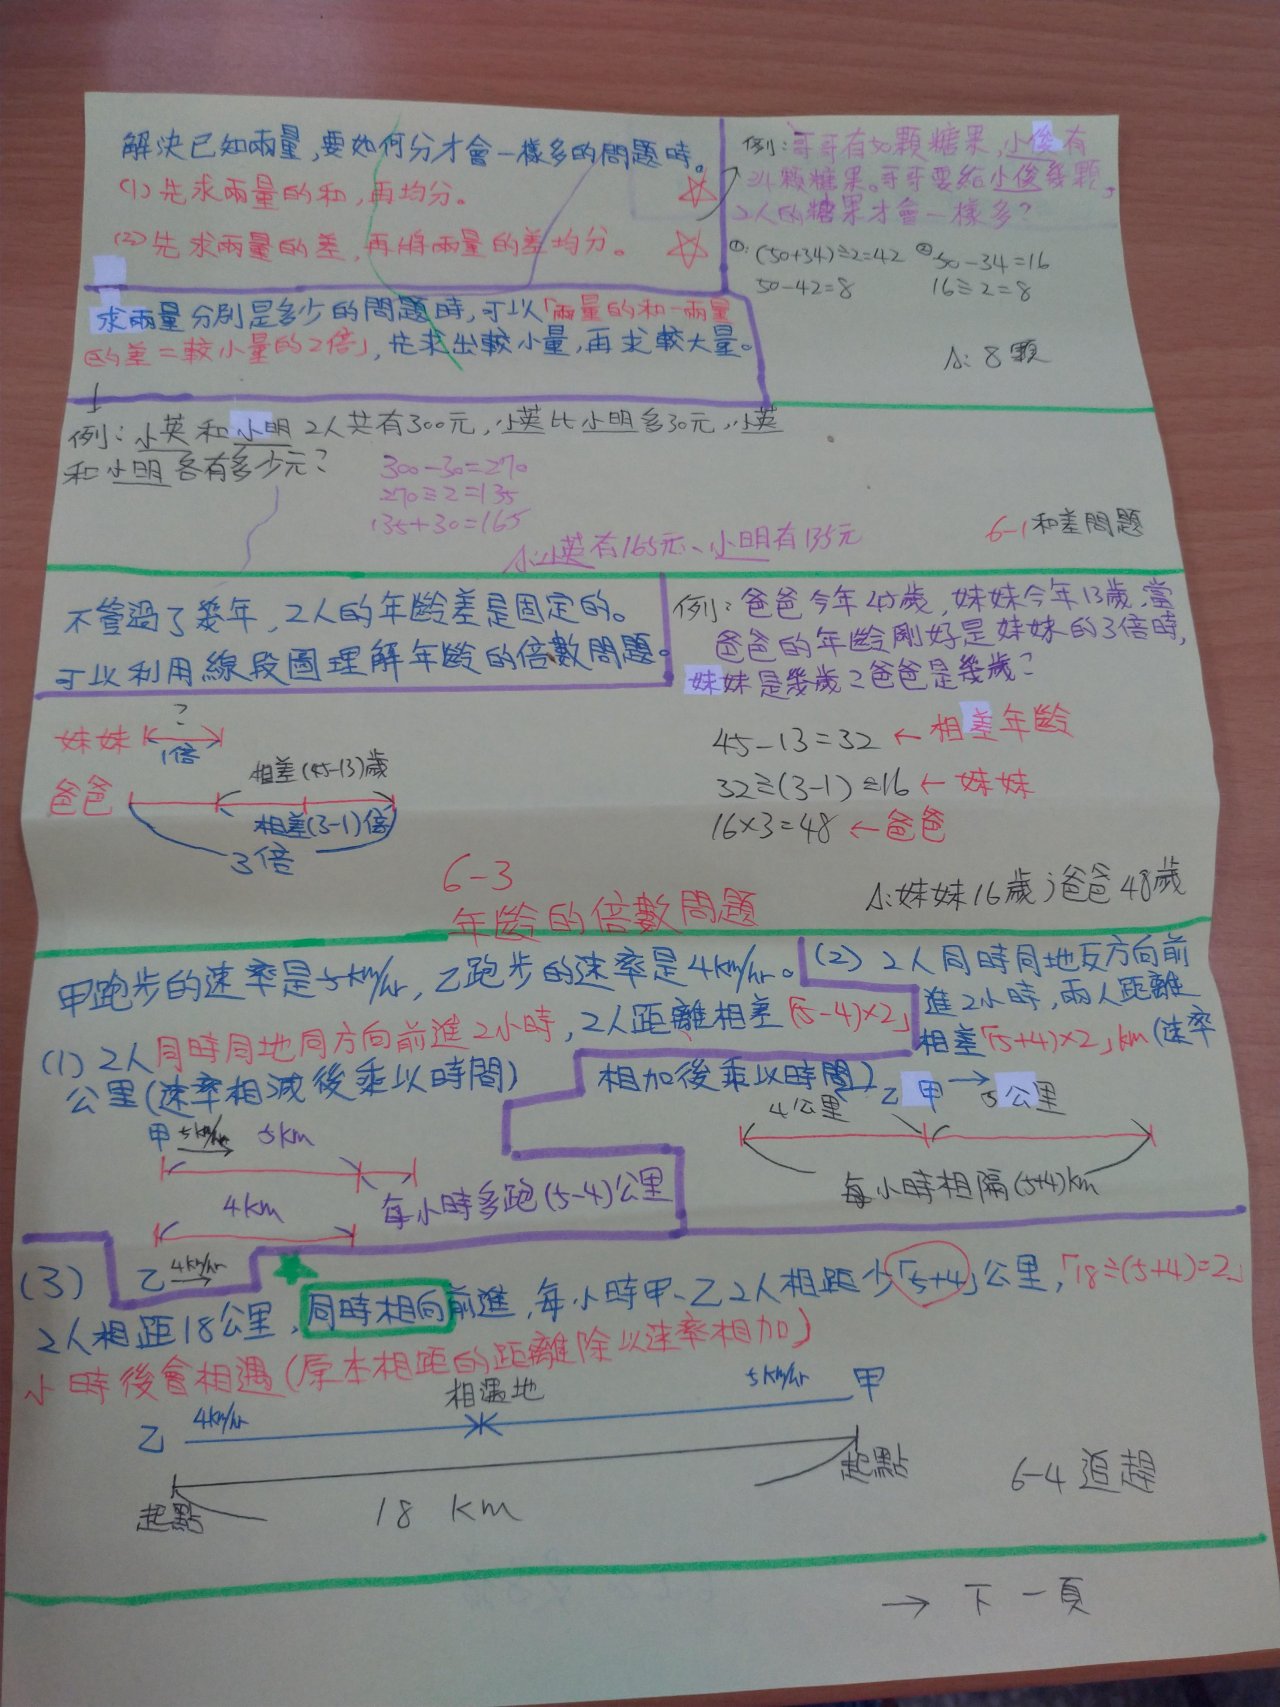 解決已知兩量,要如何分才會一樣多的問題時。
(1)先求兩量的和,再均分。
(2)先求兩量的差,再將兩量的差均分。
例:哥哥有50顆糖果,小俊有
34顆糖果。哥哥要給小俊幾顆,
2人的糖果才會一樣多?
①:(50+34)÷2=42
50-42=8
②50-34=16
16÷2=8
A:8顆
求兩量分別是多少的問題時,可以「兩量的和-兩量
的差=較小量的2倍」,先求出較小量,再求較大量。
例:小英和小明2人共有300元,小英比小明多30元,小英
和小明各有多少元?
300-30=270
270÷2=135
135+30=165
A:小英有165元、小明有135元
6-1和差問題
不管過了幾年,2人的年齡差是固定的。
可以利用線段圖理解年齡的倍數問題。
例:爸爸今年45歲,妹妹今年13歲,當
爸爸的年齡剛好是妹妹的3倍時,
妹妹是幾歲?爸爸是幾歲?
?
妹妹
1倍
相差(45-13)歲
爸爸
相差(3-1)倍
3倍
45-13=32←相差年齡
32÷(3-1)=16←妹妹
16×3=48←爸爸
A:妹妹16歲;爸爸48歲
6-3
年齡的倍數問題
甲跑步的速率是5km/hr,乙跑步的速率是4km/hr。
(1)2人同時同地同方向前進2小時,2人距離相差「(5-4)×2」
公里(速率相減後乘以時間)
甲 5km/hr 5km
4km
每小時多跑(5-4)公里
乙 4km/hr
(2)2人同時同地反方向前
進2小時,兩人距離
相差「(5+4)×2」km(速率
相加後乘以時間)
4公里 乙 甲→5公里
每小時相隔(5+4)km
(3)
2人相距18公里,同時相向前進,每小時甲、乙2人相距少「5+4」公里,「18÷(5+4)=2」
小時後會相遇(原本相距的距離除以速率相加)
乙 4km/hr 相遇地 5km/hr 甲
起點 18 km 起點
6-4追趕
→下一頁